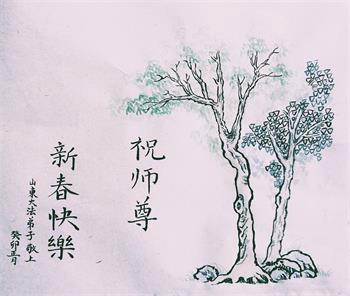 祝师尊
新春快樂
山東大法弟子 敬上
癸卯正月